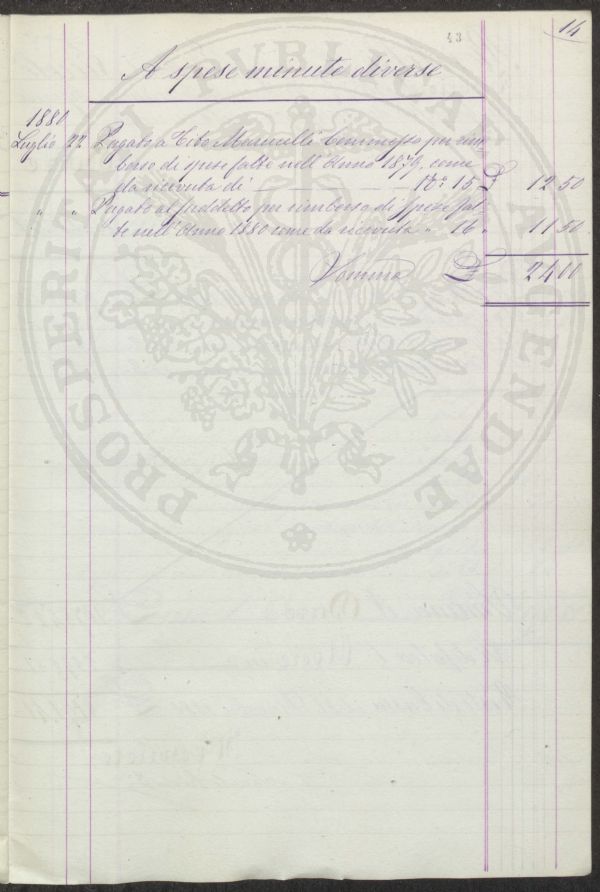 43
14
A spese minute diverse
1880
Luglio 22 Pagato a Tito Commesso per rim-
borso di spese fatte nell'Anno 1879. come
da ricevuta di N.° 15 £ 12 50
" " Pagato al suddetto per rimborso di spese fat-
te nell'Anno 1880 come da ricevuta " 16 " 11 50
Somma £ 24 00
PROSPERITATI PVBLICAE AVGENDAE